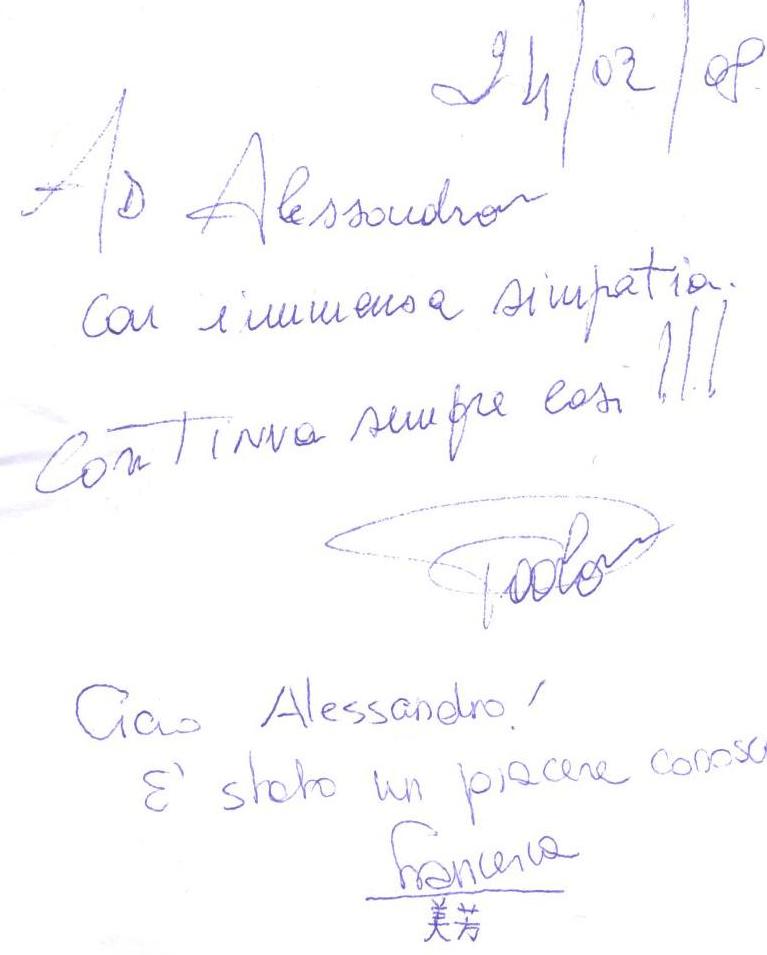 24/02/08
AD Alessandro
con immensa simpatia.
Continua sempre così!!!
Paolo
Ciao Alessandro!
E' stato un piacere conosc
Francesca
美芳